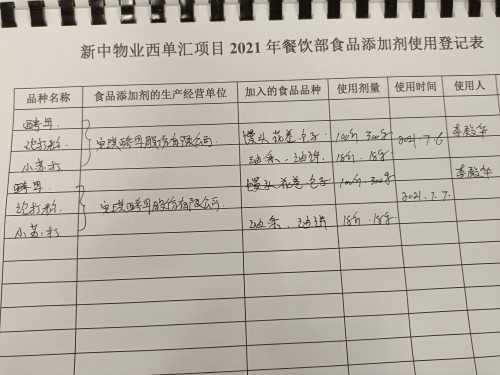 新中物业西单汇项目2021年餐饮部食品添加剂使用登记表
品种名称 食品添加剂的生产经营单位 加入的食品品种 使用剂量 使用时间 使用人
酵母
泡打粉 安琪酵母股份有限公司 馒头 花卷 包子 2021.7.6
小苏打 油条、油饼
酵母 馒头 花卷 包子
泡打粉 安琪酵母股份有限公司 2021.7.7.
小苏打 油条、油饼